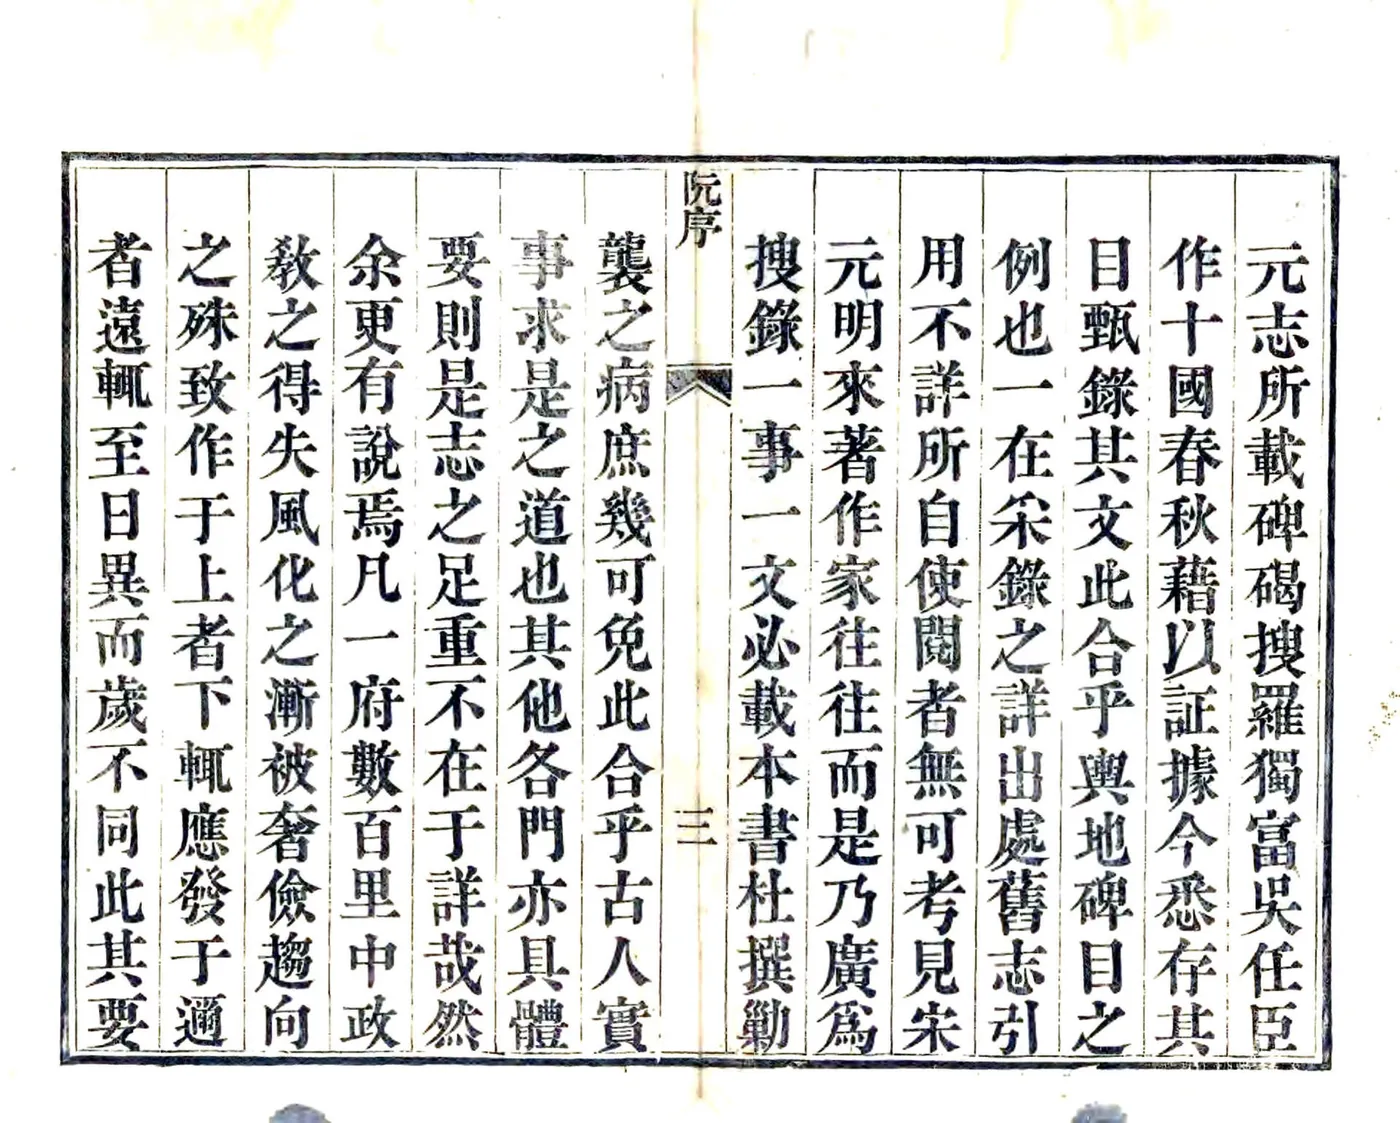 元志所載碑碣搜羅獨富吳任臣
作十國春秋藉以証據今悉存其
目甄錄其文此合乎輿地碑目之
例也一在采錄之詳出處舊志引
用不詳所自使閱者無可考見宋
元明來著作家往往而是乃廣為
搜錄一事一文必載本書杜撰勦
阮序
三
襲之病庶幾可免此合乎古人實
事求是之道也其他各門亦具體
要則是志之足重不在于詳哉然
余更有說焉凡一府數百里中政
敎之得失風化之漸被奢儉趨向
之殊致作于上者下輒應發于邇
者遠輒至日異而歲不同此其要